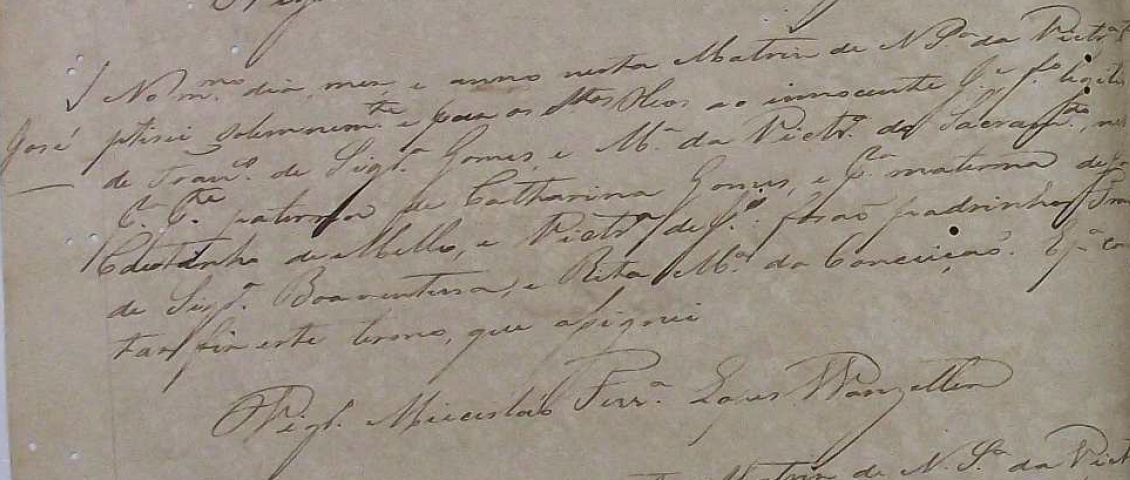 José
No m.mo dia, mes, e anno nesta Matriz de N. Sr.a da Victr.a
ptisei solemnem.te e puz os Stos Oleos ao innocente J.e f.o legit
de Fran.co de Siq.ra Gomes, e M.a da Victr.a do Sacram.to, n
paterna de Catharina Gomes, e materna de
de Mello, e Victr.a de forão padrinhos Fran
de Siq.ra Boaventura, e Rita M.a da Conceição. E p.a co
tar fiz este termo, que assignei
Vig.o Miecisláo Ferr.a Lopes Wanzeller
Matriz de N. S.ra da Vict